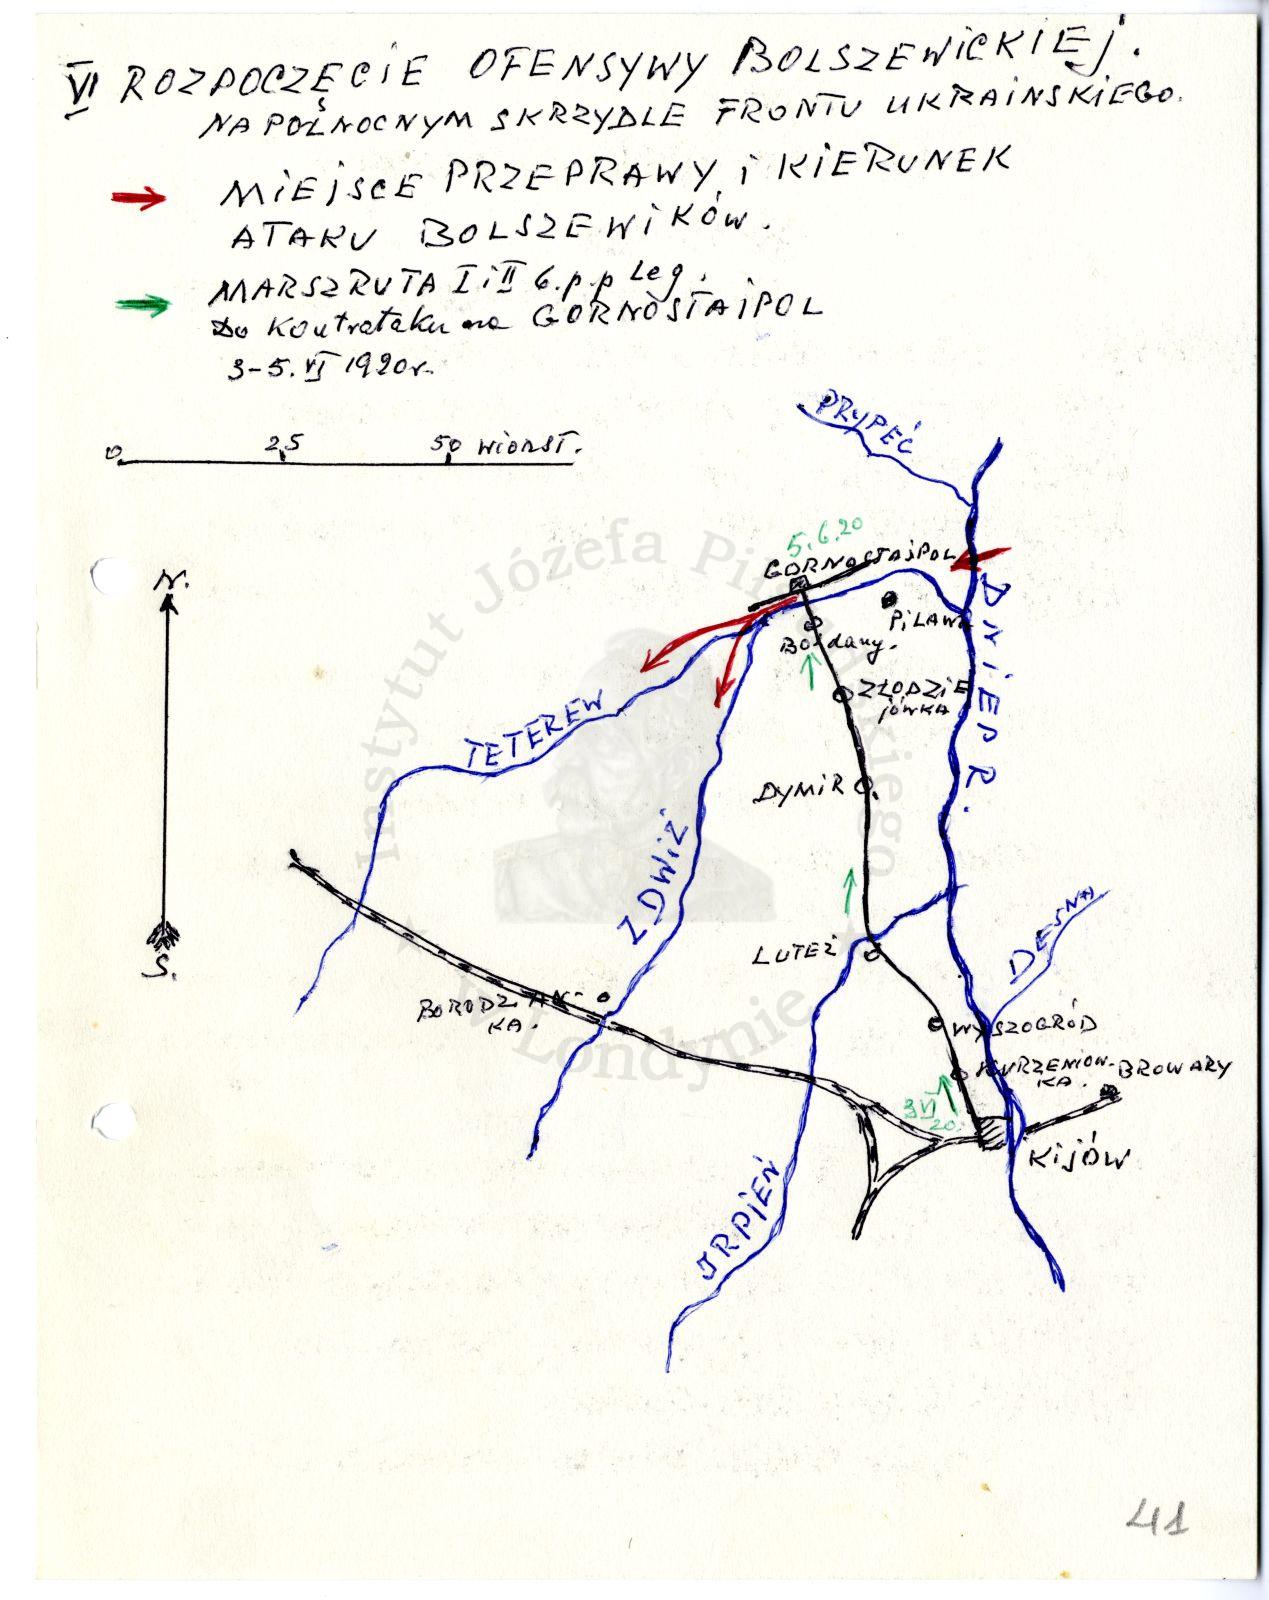 VI ROZPOCZĘCIE OFENSYWY BOLSZEWICKIEJ.
NA PÓŁNOCNYM SKRZYDLE FRONTU UKRAINSKIEGO.
MIEJSCE PRZEPRAWY i KIERUNEK
ATAKU BOLSZEWIKÓW.
MARSZRUTA I i II 6.p.p Leg.
Do Kontrataku na GORNOSTAJPOL
3-5. VI 1920r.
0 25 50 WIORST.
PRYPEĆ
N.
5.6.20
GORNOSTAJPOL
DNIEPR.
PiLAWA
Bogdany.
ZŁODZIE
JÓWKA
TETEREW
DYMIR
ZDWIŻ
DESNA
LUTEŻ
S.
BORODZIAN-
KA.
WYSZOGRÓD
KURZENIOW-
KA.
BROWARY
3 VI
20.
KIJÓW
IRPIEŃ
41
Instytut Józefa Piłsudskiego
w Londynie